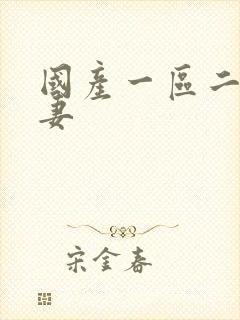 國產一區二
妻
宋金春